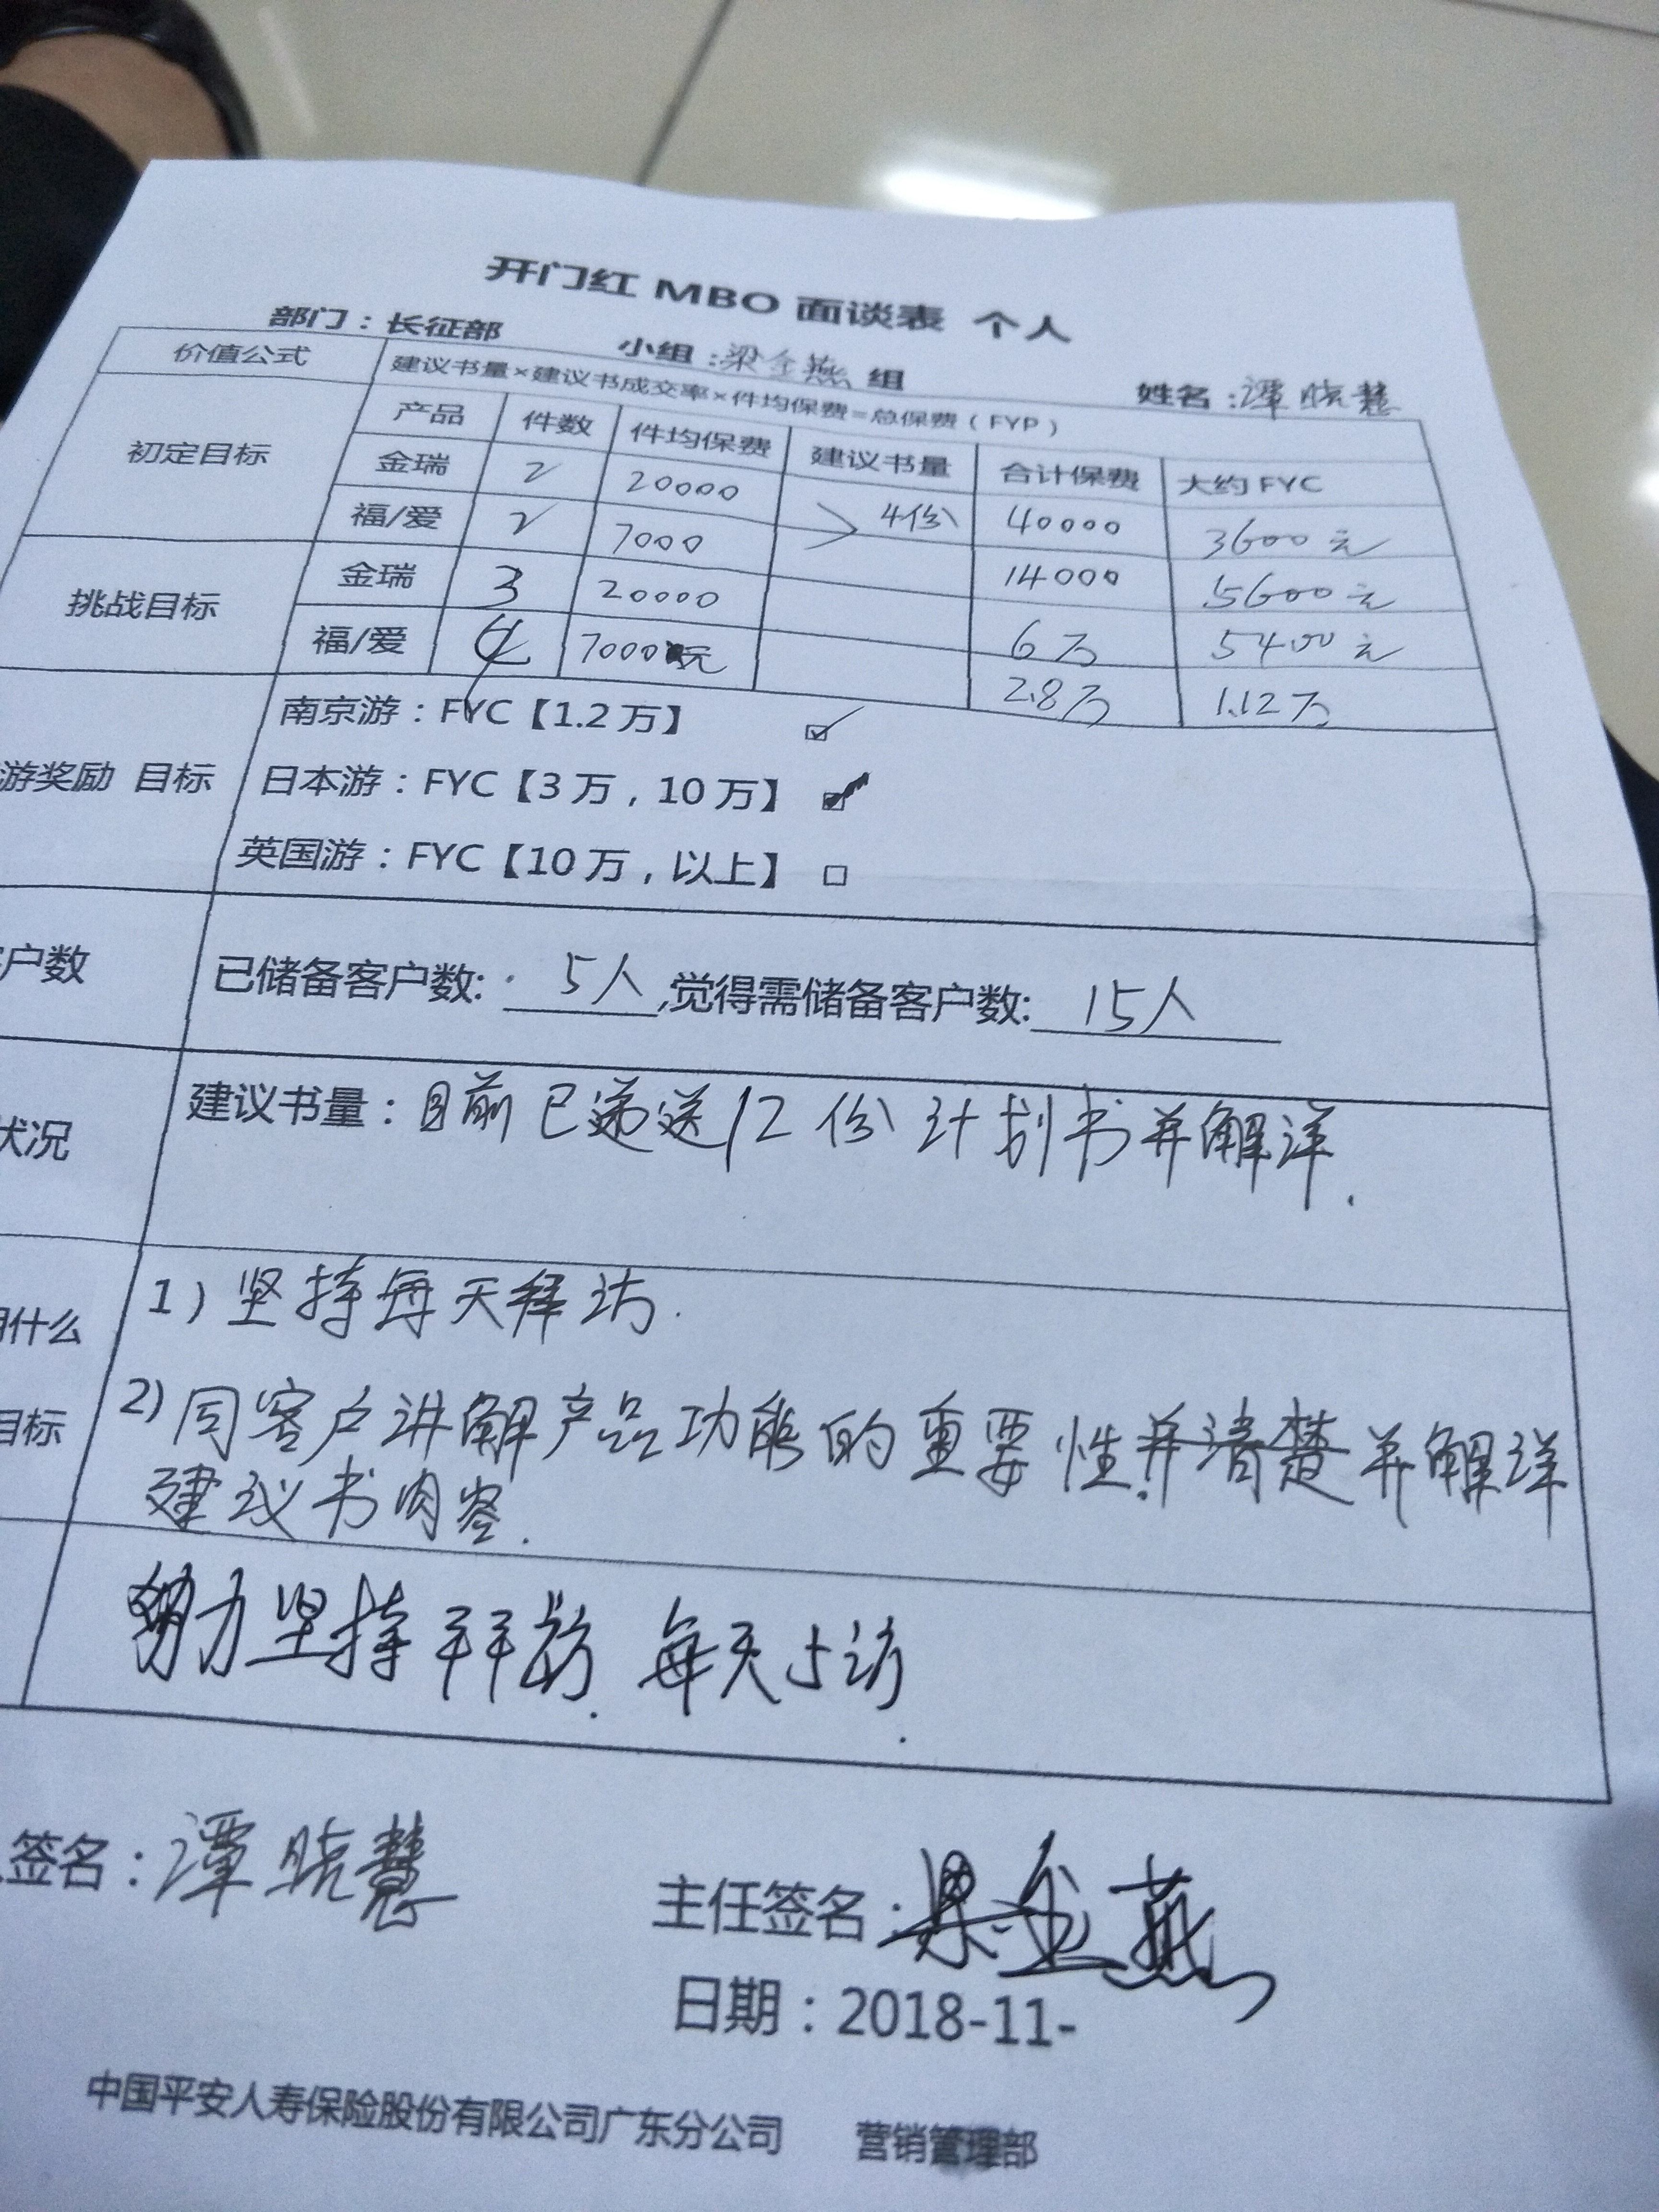 开门红 MBO 面谈表 个人
部门：长征部 小组：梁金燕 组 姓名：谭晓慧
价值公式 建议书量×建议书成交率×件均保费=总保费（FYP）
初定目标 产品 件数 件均保费 建议书量 合计保费 大约 FYC
金瑞 2 20000 4份 40000 3600元
福/爱 2 7000 14000 5600元
挑战目标 金瑞 3 20000 6万 5400元
福/爱 4 7000元 2.8万 1.12万
游奖励 目标 南京游：FYC【1.2万】 ☑
日本游：FYC【3万，10万】 ☑
英国游：FYC【10万，以上】 □
户数 已储备客户数: 5人,觉得需储备客户数: 15人
状况 建议书量：目前已递送12份计划书并解详.
什么 1）坚持每天拜访.
目标 2）同客户讲解产品功能的重要性并清楚并解详
建议书内容.
努力坚持拜访. 每天5访.
签名：谭晓慧
主任签名：梁金燕
日期：2018-11-
中国平安人寿保险股份有限公司广东分公司 营销管理部